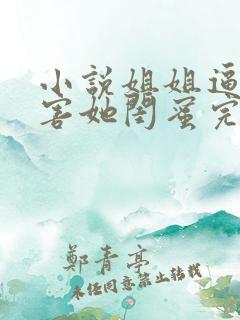 小說姐姐逼
害她閨蜜完
鄭青亭
未经同意禁止转载